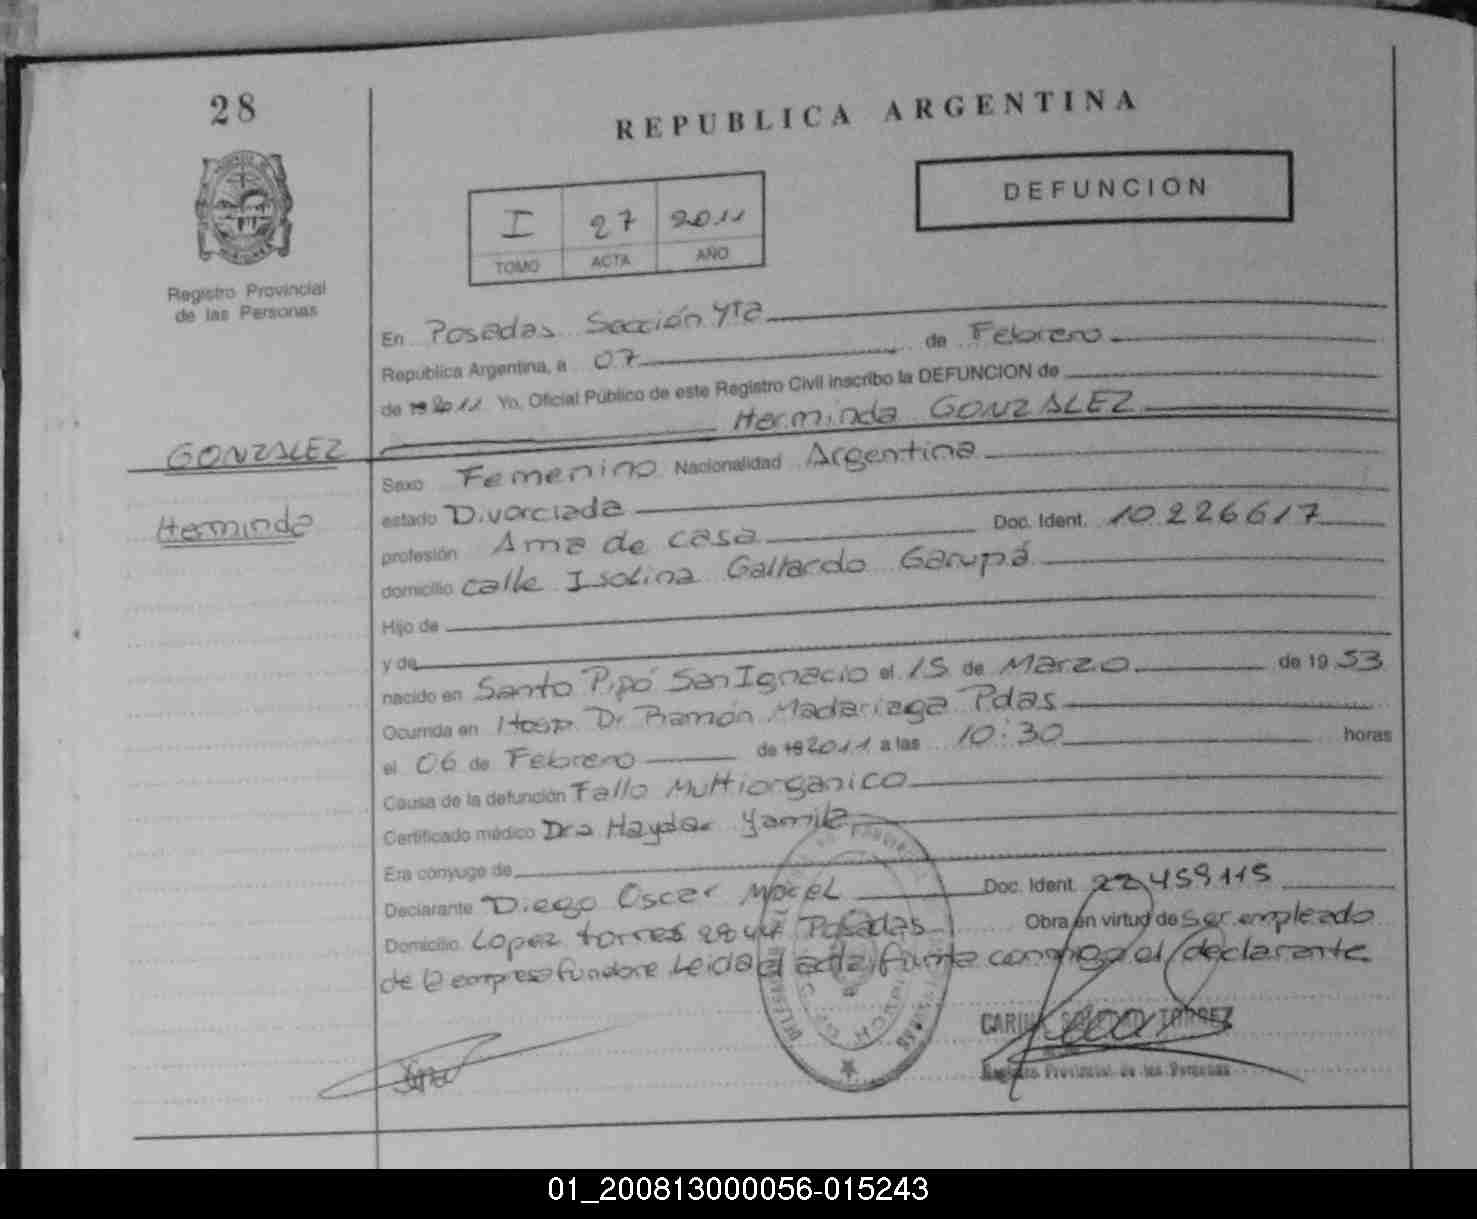 28
REPUBLICA ARGENTINA
DEFUNCION
I 27 2011
TOMO ACTA AÑO
Registro Provincial
de las Personas
En Posadas Sección 4ta
Republica Argentina, a 07 de Febrero
de 19 2011 Yo, Oficial Público de este Registro Civil inscribo la DEFUNCION de
Herminda GONZALEZ
GONZALEZ
Herminda
Sexo Femenino Nacionalidad Argentina
estado Divorciada
profesión Ama de casa Doc. Ident. 10.226617
domicilio calle Isolina Gallardo Garupá
Hijo de
y de
nacido en Santo Pipó San Ignacio el 15 de Marzo de 19 53
Ocurrida en Hosp. Dr Ramón Madariaga Pdas
el 06 de Febrero de 19 2011 a las 10:30 horas
Causa de la defunción Fallo Multiorganico
Certificado médico Dra Haydar Yamila
Era cónyuge de
Declarante Diego Oscar Doc. Ident. 22459115
Domicilio Lopez torres 2844 Posadas Obra en virtud de ser empleado
de la empresa funebre Leida el acta firma conmigo el declarante
TORREZ
Registro Provincial de las Personas
01_200813000056-015243